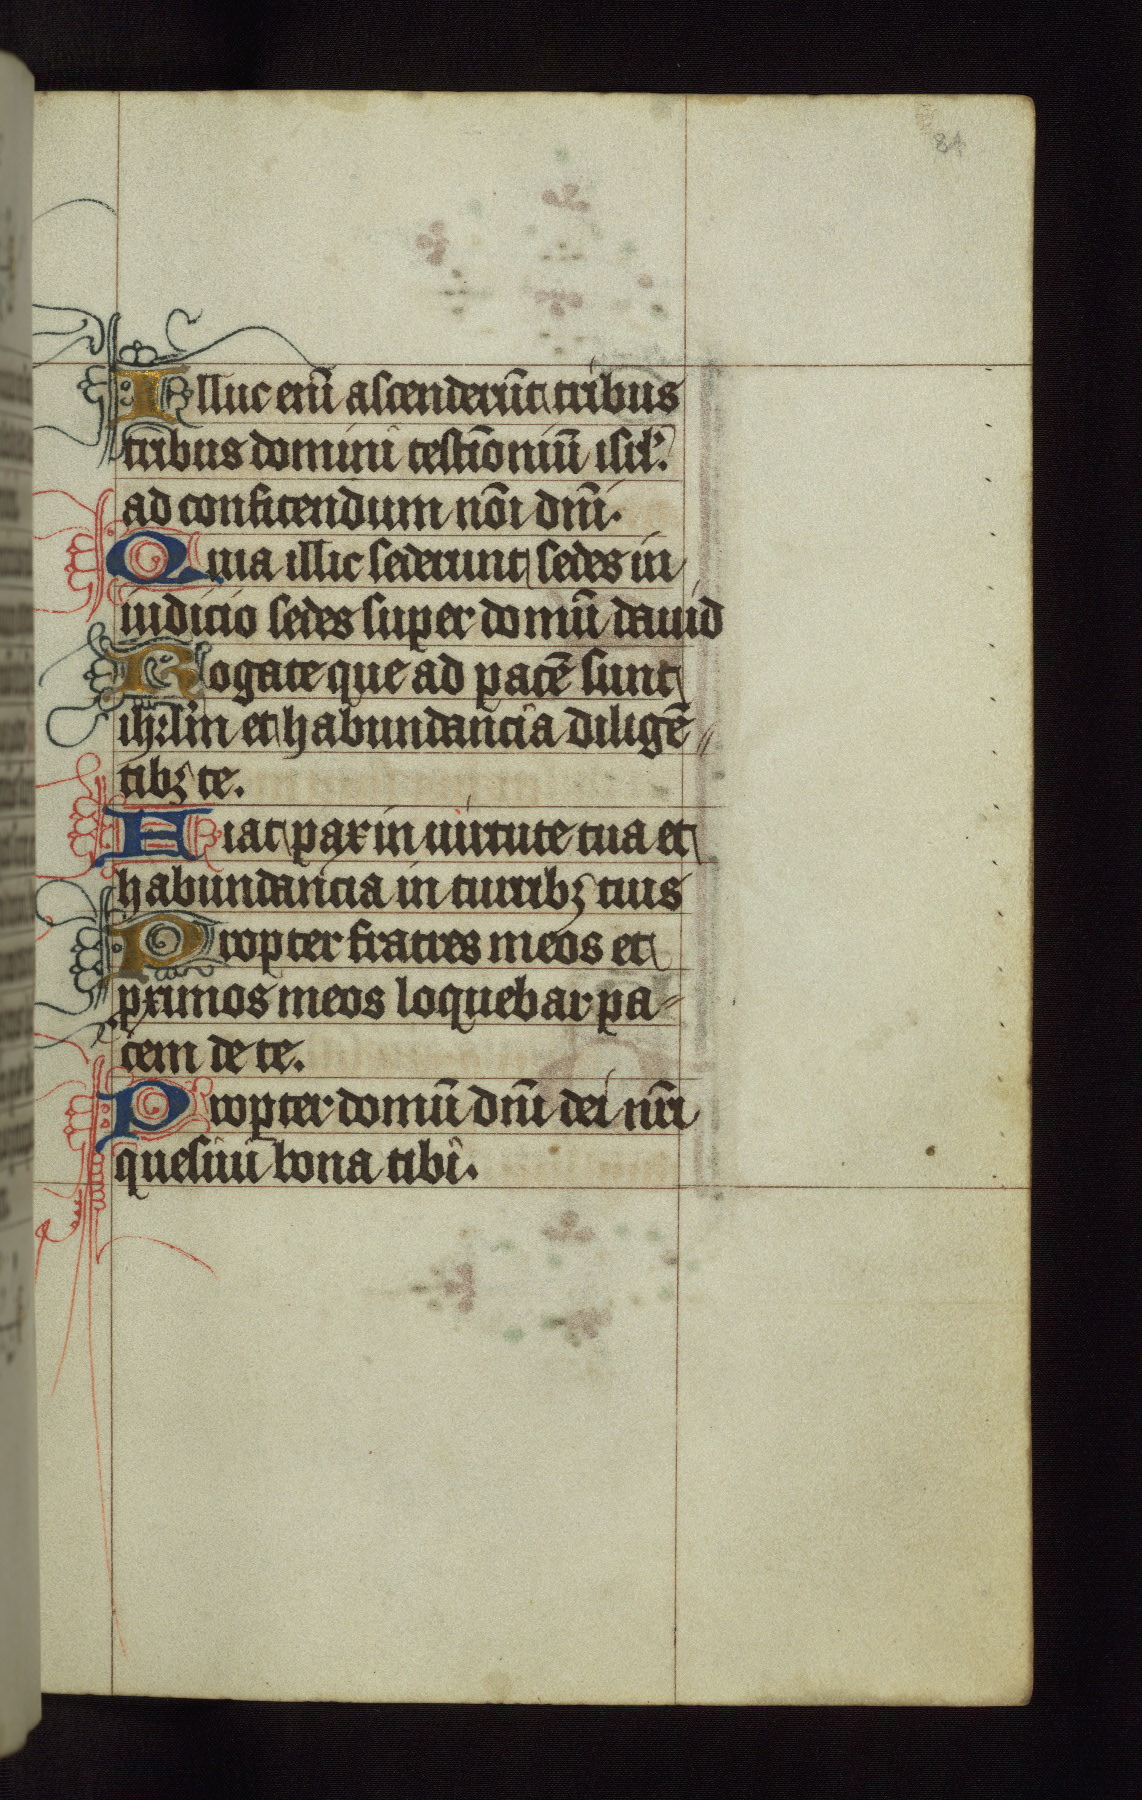 84
Illuc enī ascenderūt tribus
tribus domini testīoniū isrl̄.
ad confitendum nōi dn̄i.
Quia illic sederunt sedes in
iudicio sedes super domū dauid
Rogate que ad pacē sunt
ihrl̄m et habundancia diligē
tibꝫ te.
Fiat pax in uirtute tua et
habundancia in turribꝫ tuis
Propter fratres meos et
ꝓximos meos loquebar pa-
cem de te.
Propter domū dn̄i dei nr̄i
quesiui bona tibi.